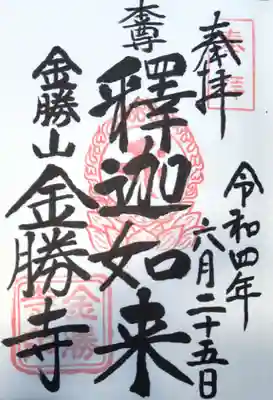 奉拝
令和四年
六月二十五日
本尊
釋迦如来
金勝山
金勝寺